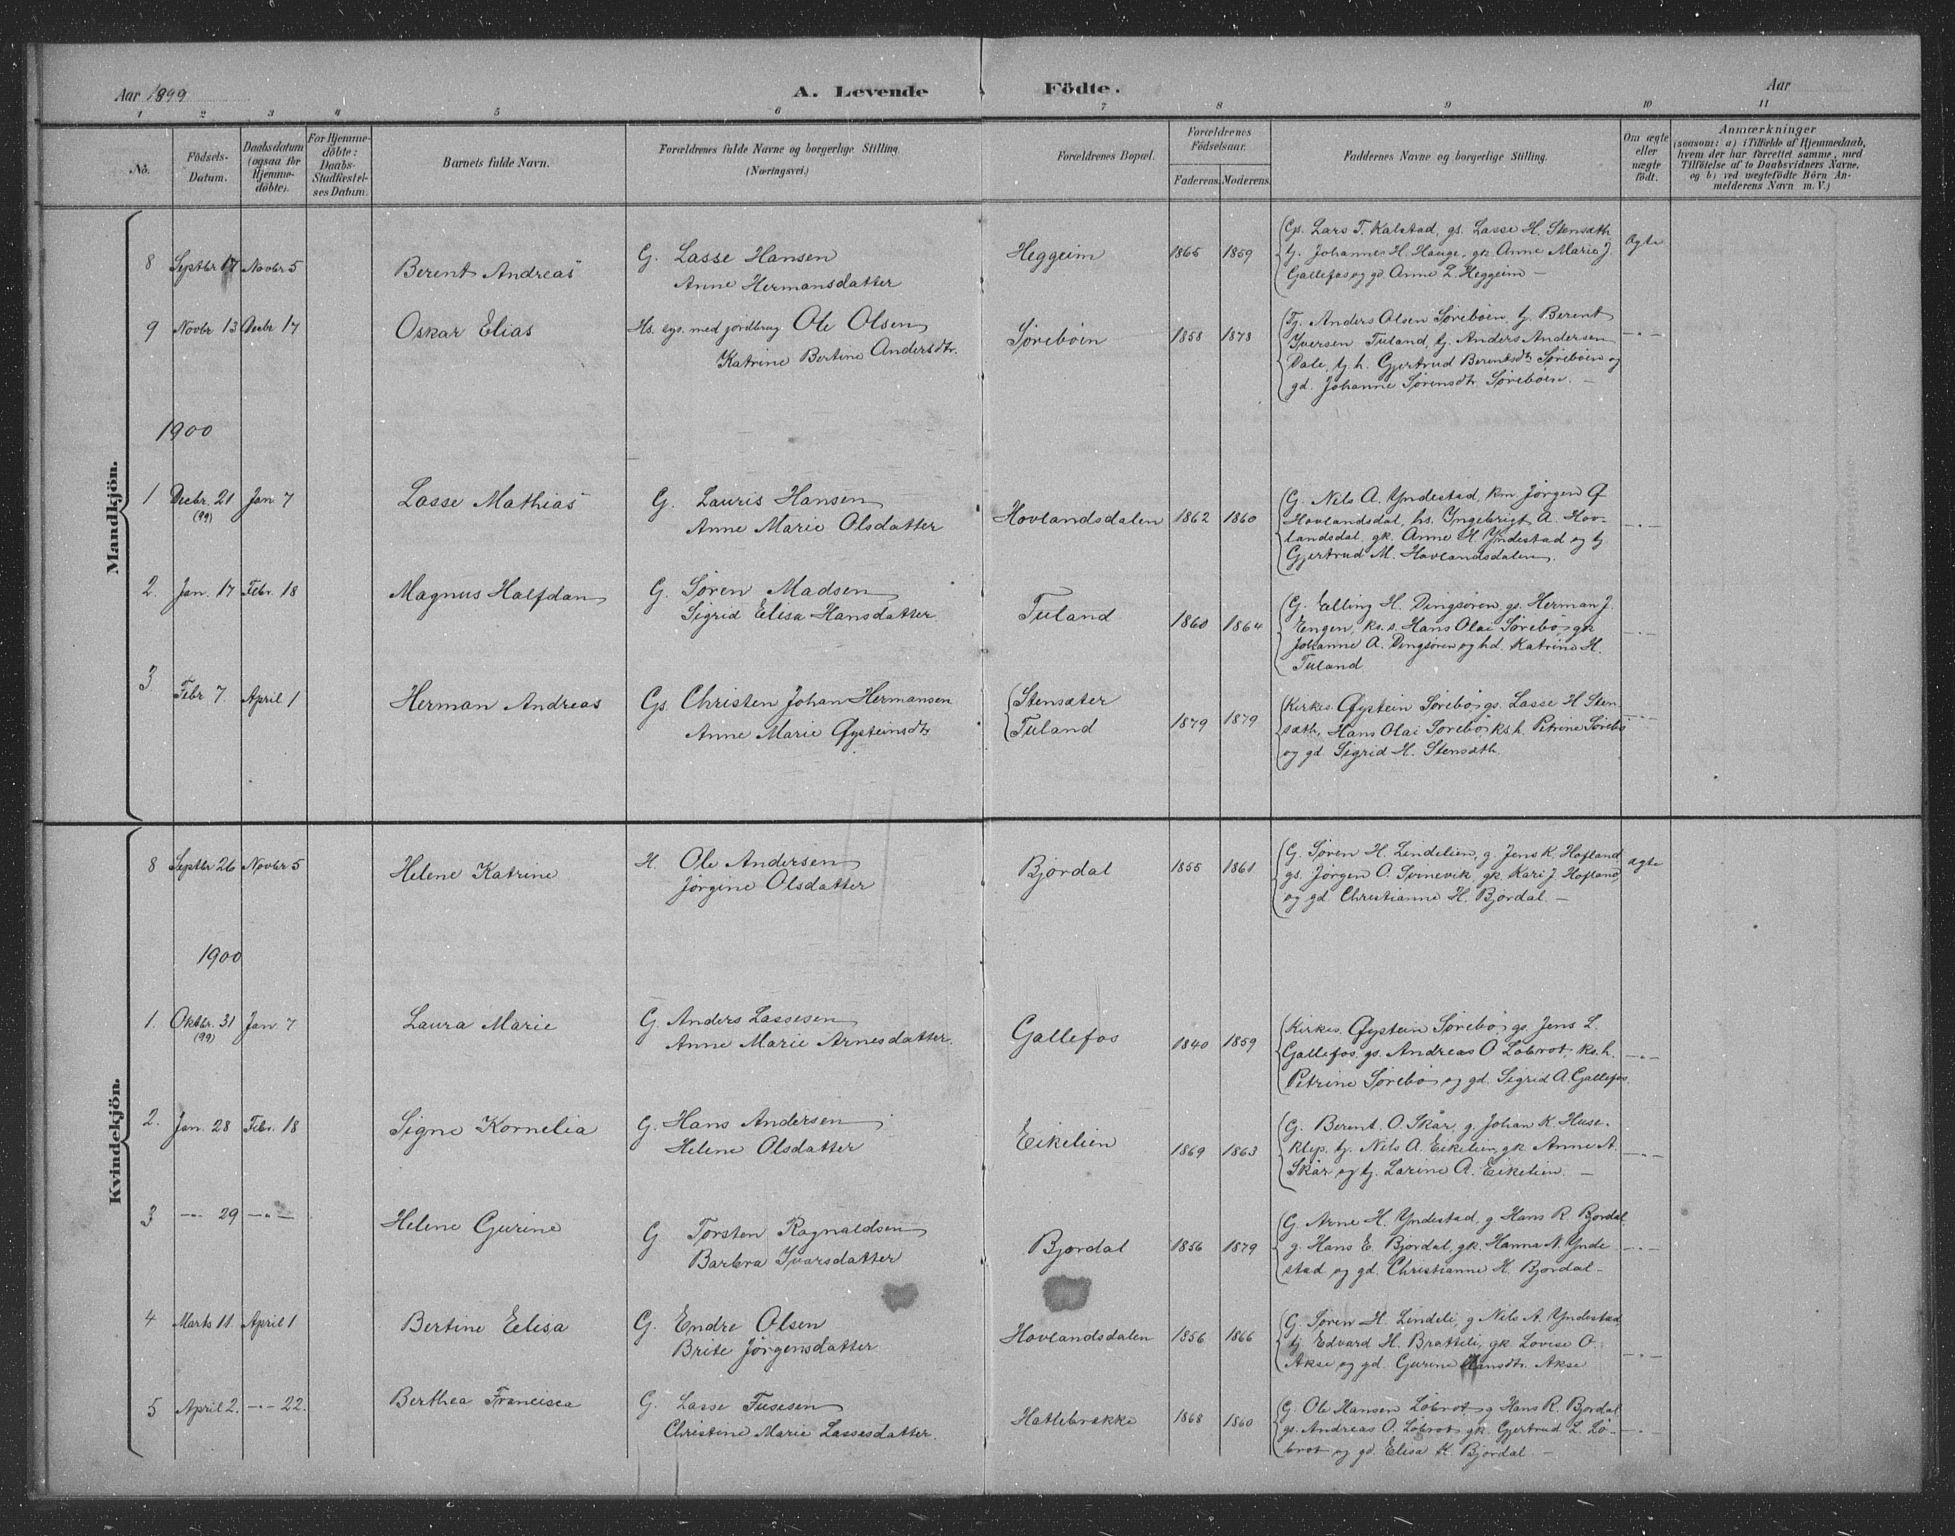 Aar 1899 A. Levende Födte. Aar
1 2 3 4 5 6 7 8 9 10 11
No.
Födsels-Datum.
Daabsdatum (ogsaa for Hjemme-döbte).
For Hjemme-döbte: Daabs-Stadfæstel-ses Datum.
Barnets fulde Navn.
Forældrenes fulde Navne og borgerlige Stilling
(Næringsvei.)
Forældrenes Bopæl.
Forældrenes Födselsaar.
Faderens. Moderens.
Faddernes Navne og borgerlige Stilling.
Om ægte eller uægte födt.
Anmærkninger
(saasom: a) i Tilfælde af Hjemmedaab,
hvem der har forrettet samme, med
Tilföielse af to Daabsvidners Navne,
og b) ved uægtefödte Börn An-
melderens Navn m. V.)
Mandkjön.
8 Septbr 17 Novbr 5 Berent Andreas G. Lasse Hansen
Anne Hermansdatter
Heggeim 1865 1859
Gs. Lars T. Kalstad, gs. Lasse H. Stensæth
tj. Johannes H. Hauge, gk. Anne Marie J.
Gallefos og gd. Anne L. Heggeim —
Ægte
9 Novbr 13 Decbr 17 Oskar Elias Hs. sys. med jordbrug Ole Olsen
Katrine Bertine Andersdtr.
Sørebøen 1858 1878
Tj. Anders Olsen Sørebøen, tj. Berent
Iversen Tuland, tj. Anders Andersen
Dale, tj. h. Gjertrud Berentsdtr Sørebøen og
gd. Johanne Sørensdtr. Sørebøen. —
—"—
1900
1 Decbr. 21 (99) Jan 7 Lasse Mathias G. Lauris Hansen
Anne Marie Olsdatter
Hovlandsdalen 1862 1860
G. Nils A. Yndestad, km Jørgen O
Hovlandsdal, hs. Ingebrigt A. Hov-
landsdal, gk. Anne H. Yndestad og tj.
Gjertrud M. Hovlandsdalen.
—"—
2. Jan. 17 Febr. 18 Magnus Halfdan G. Søren Madsen
Sigrid Elisa Hansdatter
Tuland 1860 1864
G. Elling H. Dingsøren, gs. Herman J.
Engen, ks. s. Hans Olai Sørebø, gk
Johanne A. Dingsøren og hd. Katrine H.
Tuland
—"—
3 Febr 7. April 1 Herman Andreas Gs. Christen Johan Hermansen
Anne Marie Øysteinsdtr
Stensæter
Tuland
1879 1879
Kirkes. Øystein Sørebø, gs. Lasse H Sten-
sæth, Hans Olai Sørebø, ks. h. Petrine Sørebø
og gd. Sigrid H. Stensæth.
—"—
Kvindekjön.
8 Septbr 26 Novbr 5 Helene Katrine H. Ole Andersen
Jørgine Olsdatter
Bjørdal 1855 1861
G. Søren H. Lindelien, g. Jens K. Hofland
gs. Jørgen O. Svinevik, gk. Kari J. Hofland,
og gd. Christianne H. Bjørdal. —
ægte
1900
1. Oktbr. 31 (99) Jan 7 Laura Marie G. Anders Lassesen
Anne Marie Arnesdatter.
Gallefos 1840 1859
Kirkes. Øystein Sørebø, gs. Jens L.
Gallefos, gs. Andreas O Løbrot, ks. h.
Petrine Sørebø og gd. Sigrid A. Gallefos
—"—
2. Jan. 28 Febr. 18 Signe Kornelia G. Hans Andersen
Helene Olsdatter
Eikelien 1869 1863
G. Berent O. Skår, g. Johan K. Huse-
klep, tj. Nils A. Eikelien, gk. Anne A.
Skår og tj. Larine A. Eikelien. —
—"—
3 —"— 29 —"— Helene Gurine G Torsten Ragnaldsen
Barbra Ivarsdatter
Bjordal 1856 1879
G. Arne H. Yndestad, g Hans R. Bjordal
g. Hans E. Bjordal, gk. Hanna N. Ynde
stad og gd. Christianne H. Bjordal—
—"—
4 Marts 11. April 1 Bertine Elisa G. Endre Olsen
Brite Jørgensdatter
Hovlandsdalen 1856 1866
G. Søren H. Lindeli, g Nils A. Yndestad
tj. Edvard H. Brattli, gk. Lovise O.
Akse og gd. Gurine Hansdtr. Akse
—"—
5 April 2. —"— 22. Berthea Francisca G. Lasse Tusesen
Christine Marie Lassesdatter.
Hattebrekke 1868 1860
G. Ole Hansen Løbrot, g Hans R. Bjordal
gs. Andreas O. Løbrot, gk. Gjertrud L. Lø-
brot og gd. Elisa K. Bjordal —
—"—